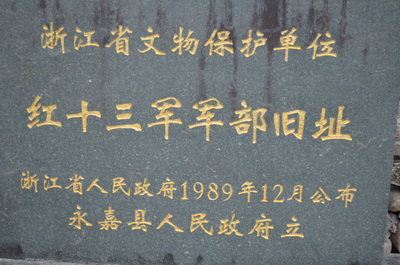 浙江省文物保护单位
红十三军军部旧址
浙江省人民政府1989年12月公布
永嘉县人民政府立